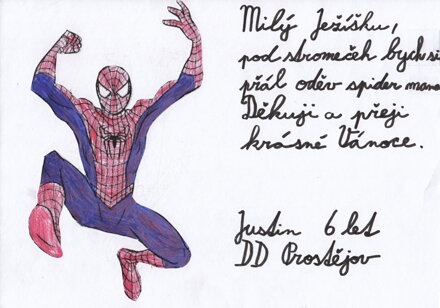 Milý Ježíšku,
pod stromeček bych si
přál oděv spider mana
Děkuji a přeji
krásné Vánoce.
Justin 6 let
DD Prostějov